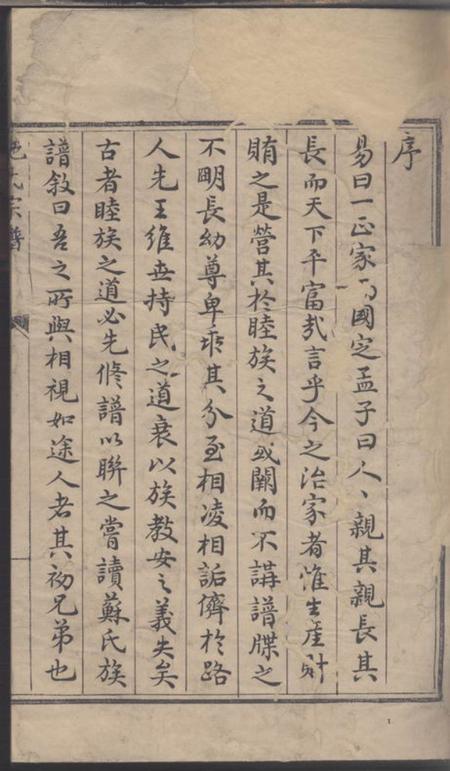 序
易曰一正家而國定孟子曰人人親其親長其
長而天下平富哉言乎今之治家者惟生産財
賄之是營其於睦族之道或闕而不講譜牒之
不明長幼尊卑乖其分至相凌相詬儕於路
人先王維世持民之道衰以族教安之義失矣
古者睦族之道必先修譜以聯之嘗讀蘇氏族
譜敘曰吾之所與相視如途人者其初兄弟也
氏宗譜